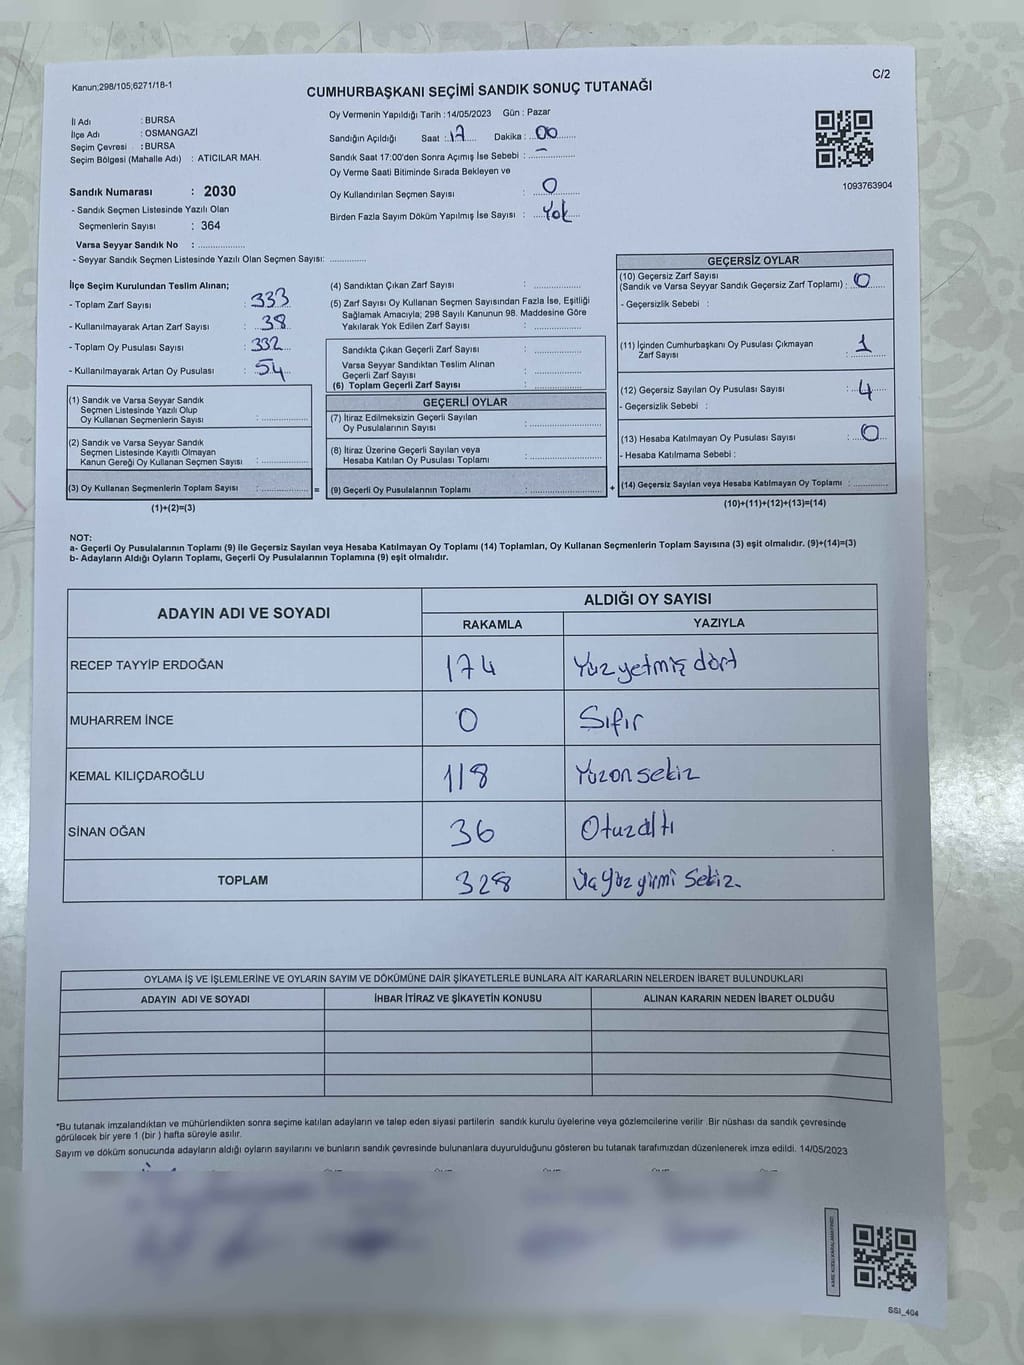 Kanun;298/105;6271/18-1
C/2
CUMHURBAŞKANI SEÇİMİ SANDIK SONUÇ TUTANAĞI
İl Adı : BURSA
İlçe Adı : OSMANGAZİ
Seçim Çevresi : BURSA
Seçim Bölgesi (Mahalle Adı) : ATICILAR MAH.
Sandık Numarası : 2030
- Sandık Seçmen Listesinde Yazılı Olan
Seçmenlerin Sayısı : 364
Varsa Seyyar Sandık No : ..............
- Seyyar Sandık Seçmen Listesinde Yazılı Olan Seçmen Sayısı: ............
Oy Vermenin Yapıldığı Tarih :14/05/2023 Gün : Pazar
Sandığın Açıldığı Saat : 17 Dakika : 00
Sandık Saat 17:00'den Sonra Açımış İse Sebebi : -
Oy Verme Saati Bitiminde Sırada Bekleyen ve
Oy Kullandırılan Seçmen Sayısı : 0
Birden Fazla Sayım Döküm Yapılmış İse Sayısı : Yok
1093763904
İlçe Seçim Kurulundan Teslim Alınan;
- Toplam Zarf Sayısı : 333
- Kullanılmayarak Artan Zarf Sayısı : 38
- Toplam Oy Pusulası Sayısı : 332
- Kullanılmayarak Artan Oy Pusulası : 54
(1) Sandık ve Varsa Seyyar Sandık
Seçmen Listesinde Yazılı Olup
Oy Kullanan Seçmenlerin Sayısı : ..............
(2) Sandık ve Varsa Seyyar Sandık
Seçmen Listesinde Kayıtlı Olmayan
Kanun Gereği Oy Kullanan Seçmen Sayısı : ..............
(3) Oy Kullanan Seçmenlerin Toplam Sayısı : ..............
(1)+(2)=(3)
(4) Sandıktan Çıkan Zarf Sayısı : ..............
(5) Zarf Sayısı Oy Kullanan Seçmen Sayısından Fazla İse, Eşitliği
Sağlamak Amacıyla; 298 Sayılı Kanunun 98. Maddesine Göre
Yakılarak Yok Edilen Zarf Sayısı : ..............
Sandıkta Çıkan Geçerli Zarf Sayısı : ..............
Varsa Seyyar Sandıktan Teslim Alınan
Geçerli Zarf Sayısı : ..............
(6) Toplam Geçerli Zarf Sayısı : ..............
GEÇERLİ OYLAR
(7) İtiraz Edilmeksizin Geçerli Sayılan
Oy Pusulalarının Sayısı : ..............
(8) İtiraz Üzerine Geçerli Sayılan veya
Hesaba Katılan Oy Pusulası Toplamı : ..............
= (9) Geçerli Oy Pusulalarının Toplamı : ..............
GEÇERSİZ OYLAR
(10) Geçersiz Zarf Sayısı
(Sandık ve Varsa Seyyar Sandık Geçersiz Zarf Toplamı) : 0
- Geçersizlik Sebebi :
(11) İçinden Cumhurbaşkanı Oy Pusulası Çıkmayan
Zarf Sayısı : 1
(12) Geçersiz Sayılan Oy Pusulası Sayısı : 4
- Geçersizlik Sebebi :
(13) Hesaba Katılmayan Oy Pusulası Sayısı : 0
- Hesaba Katılmama Sebebi :
+ (14) Geçersiz Sayılan veya Hesaba Katılmayan Oy Toplamı : ..............
(10)+(11)+(12)+(13)=(14)
NOT:
a- Geçerli Oy Pusulalarının Toplamı (9) ile Geçersiz Sayılan veya Hesaba Katılmayan Oy Toplamı (14) Toplamları, Oy Kullanan Seçmenlerin Toplam Sayısına (3) eşit olmalıdır. (9)+(14)=(3)
b- Adayların Aldığı Oyların Toplamı, Geçerli Oy Pusulalarının Toplamına (9) eşit olmalıdır.
ADAYIN ADI VE SOYADI
ALDIĞI OY SAYISI
RAKAMLA YAZIYLA
RECEP TAYYİP ERDOĞAN 174 Yüz yetmiş dört
MUHARREM İNCE 0 Sıfır
KEMAL KILIÇDAROĞLU 118 Yüzonsekiz
SİNAN OĞAN 36 Otuzaltı
TOPLAM 328 Üçyüz yirmi sekiz.
OYLAMA İŞ VE İŞLEMLERİNE VE OYLARIN SAYIM VE DÖKÜMÜNE DAİR ŞİKAYETLERLE BUNLARA AİT KARARLARIN NELERDEN İBARET BULUNDUKLARI
ADAYIN ADI VE SOYADI İHBAR İTİRAZ VE ŞİKAYETİN KONUSU ALINAN KARARIN NEDEN İBARET OLDUĞU
*Bu tutanak imzalandıktan ve mühürlendikten sonra seçime katılan adayların ve talep eden siyasi partilerin sandık kurulu üyelerine veya gözlemcilerine verilir .Bir nüshası da sandık çevresinde
görülecek bir yere 1 (bir ) hafta süreyle asılır.
Sayım ve döküm sonucunda adayların aldığı oyların sayılarını ve bunların sandık çevresinde bulunanlara duyurulduğunu gösteren bu tutanak tarafımızdan düzenlenerek imza edildi. 14/05/2023
SSI_404